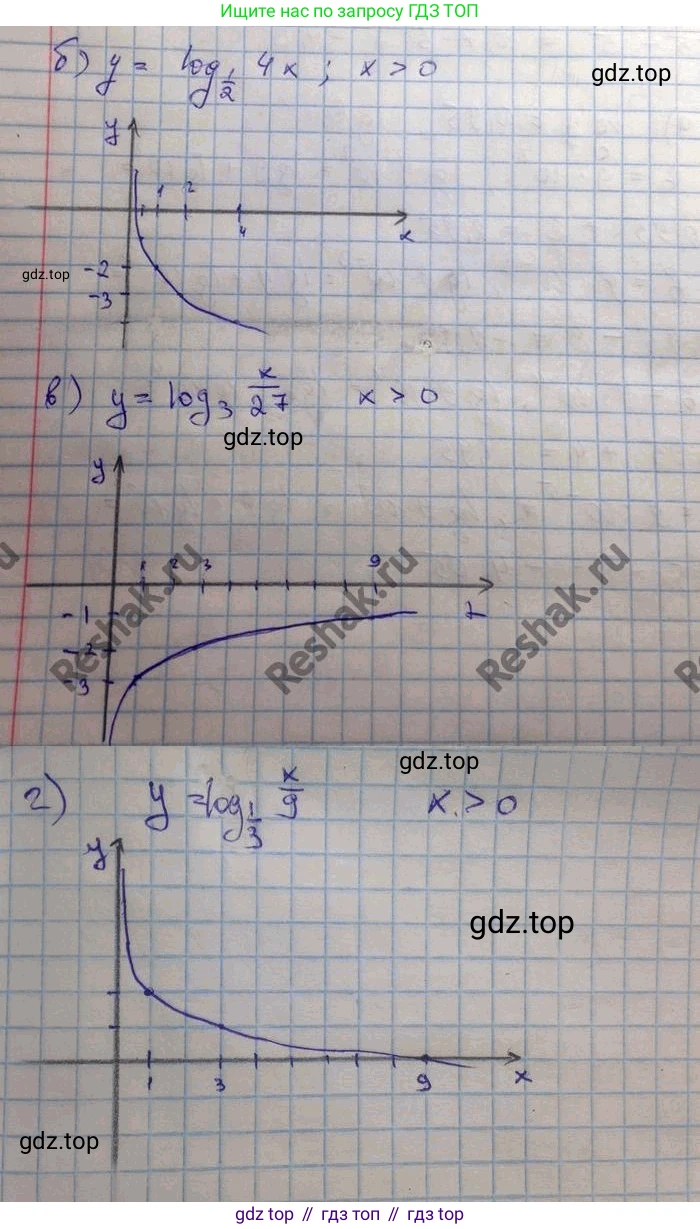 Ищите нас по запросу ГДЗ ТОП
б) y = log_{1/2} 4x ; x > 0
gdz.top
y
1 2
4
x
gdz.top
-2
-3
в) y = log_3 x/27 x > 0
gdz.top
y
1 2 3 9
x
-1
-2
-3
Reshak.ru Reshak.ru Reshak.ru
gdz.top
г) y = log_{1/3} x/9 x > 0
y
gdz.top
1 3 9 x
gdz.top
gdz.top // гдз топ // gdz.top